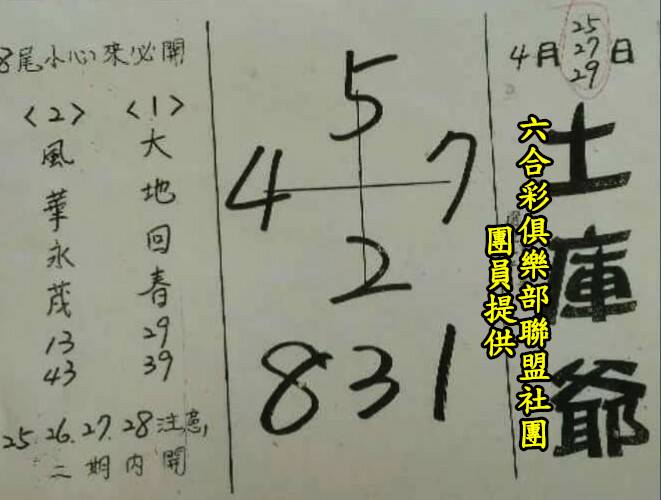 4月25 27 29日
土庫爺
六合彩俱樂部聯盟社團
團員提供
5
4 7
2
8 3 1
8尾小心來必開
<1>
大地回春
29
39
<2>
風華永茂
13
43
25.26.27.28注意,
二期内開